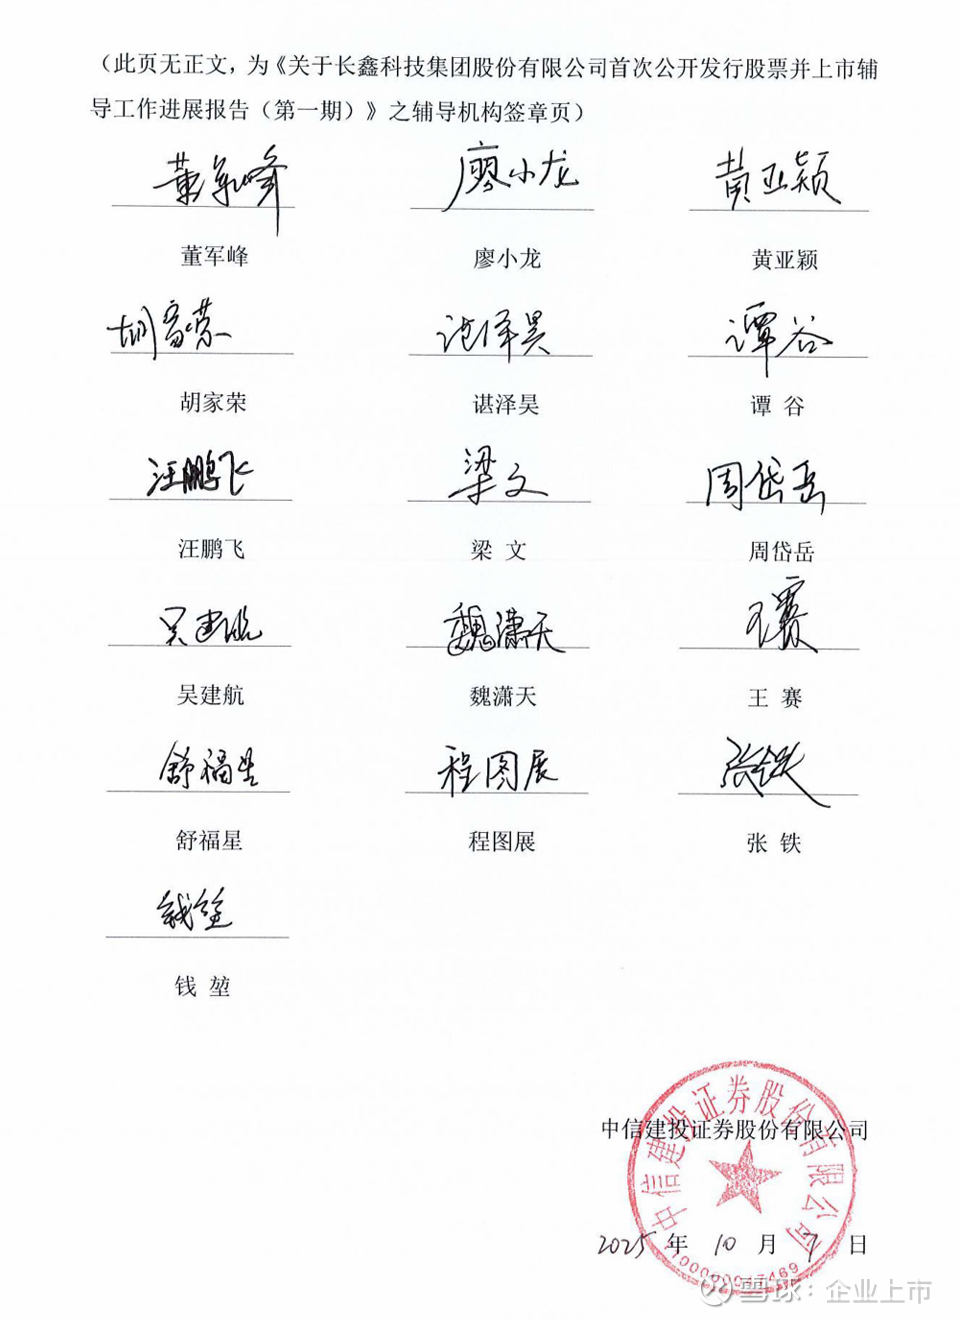 （此页无正文，为《关于长鑫科技集团股份有限公司首次公开发行股票并上市辅
导工作进展报告（第一期）》之辅导机构签章页）
董军峰 廖小龙 黄亚颖
董军峰 廖小龙 黄亚颖
胡家荣 谌泽昊 谭谷
胡家荣 谌泽昊 谭 谷
汪鹏飞 梁文 周岱岳
汪鹏飞 梁 文 周岱岳
吴建航 魏潇天 王赛
吴建航 魏潇天 王 赛
舒福星 程图展 张铁
舒福星 程图展 张 铁
钱堃
钱 堃
中信建投证券股份有限公司
中信建投证券股份有限公司
2025 年 10 月 9 日
雪球：企业上市